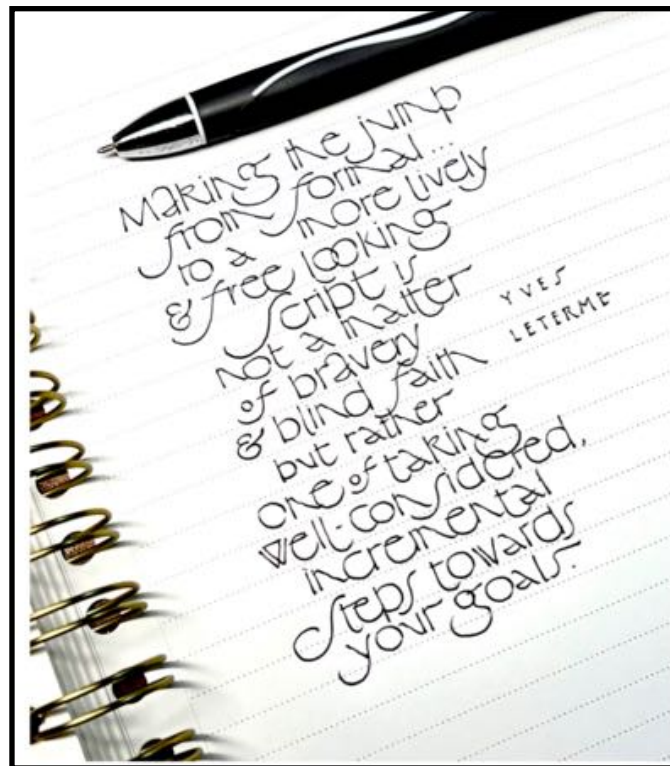 Making the jump
from formal...
to a more lively
& free looking
script is
not a matter
of bravery
& blind faith
but rather
one of taking
well-considered,
incremental
steps towards
your goals.
YVES
LETERME